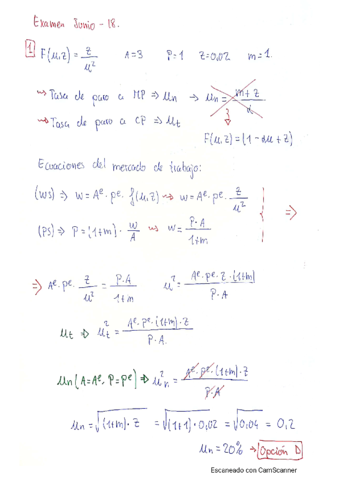 Examen Junio - 18.
1 F(u,z) = z/u² A=3 P=1 z=0,02 m=1.
↝ Tasa de paro a MP => un → un = m+z/α
↝ Tasa de paro a CP => ut
F(u,z) = (1-αu+z)
Ecuaciones del mercado de trabajo:
(WS) => W = Aᵉ·pᵉ·f(u,z) ↝ W = Aᵉ·pᵉ·z/u²
=>
(PS) => P = (1+m)·W/A ↝ W = P·A/1+m
=> Aᵉ·pᵉ·z/u² = P·A/1+m u² = Aᵉ·pᵉ·z·(1+m)/P·A
ut => ut² = Aᵉ·pᵉ·(1+m)·z/P·A.
un (A=Aᵉ, P=Pᵉ) => un² = Aᵉ·pᵉ·(1+m)·z/P·A
un = √(1+m)·z = √(1+1)·0,02 = √0,04 = 0,2
un = 20% → Opción D
Escaneado con CamScanner